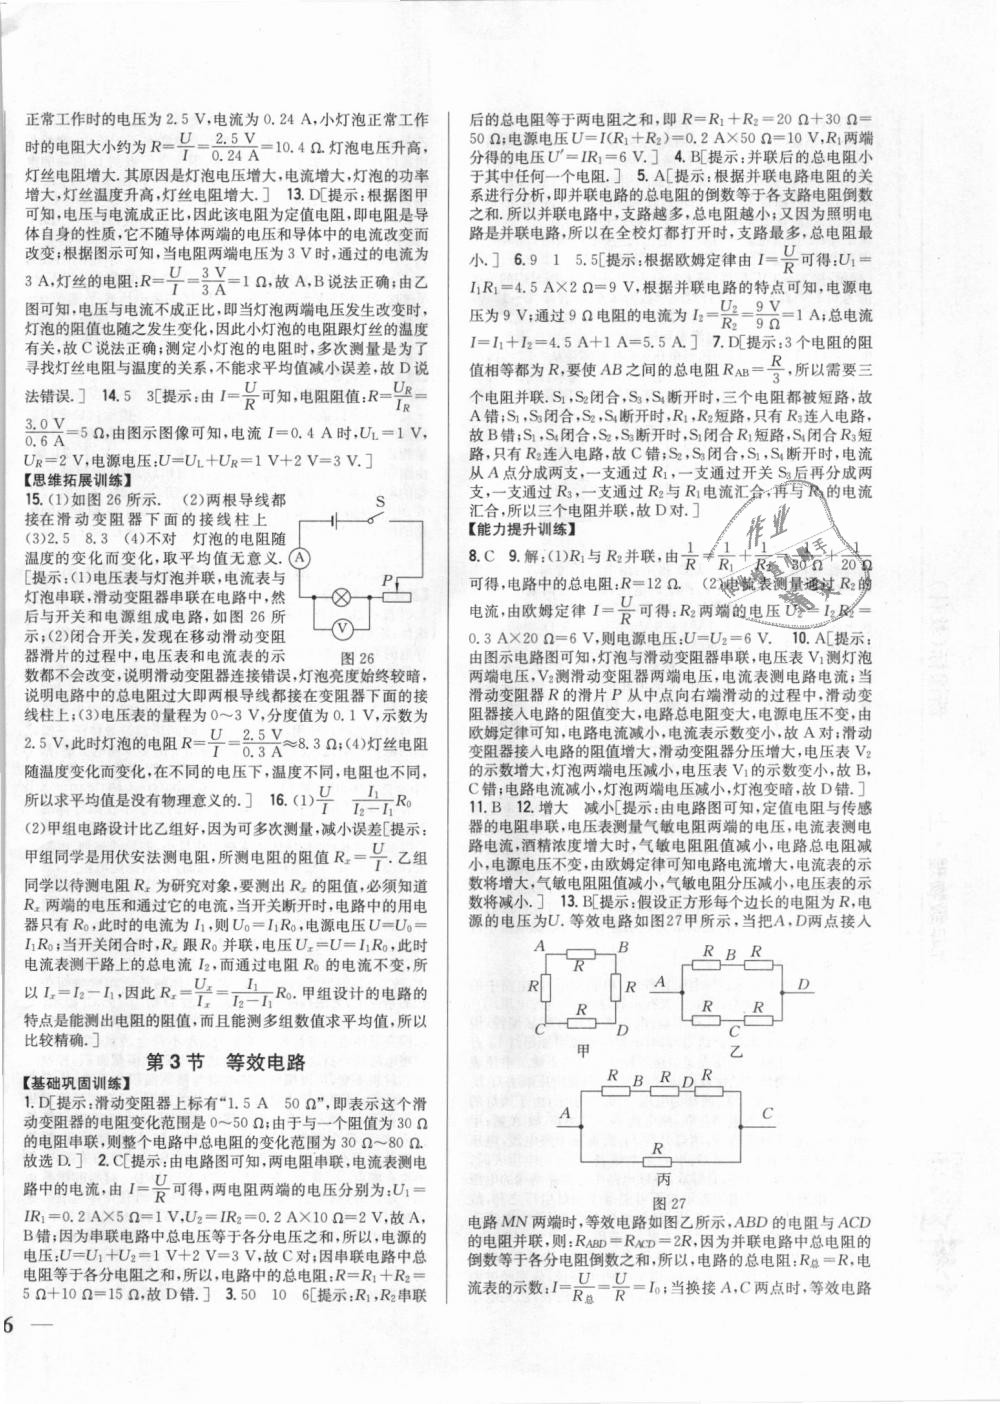 正常工作时的电压为 2.5 V,电流为 0.24 A,小灯泡正常工作
时的电阻大小约为 R=U/I=2.5 V/0.24 A=10.4 Ω. 灯泡电压升高,
灯丝电阻增大. 其原因是灯泡电压增大,电流增大,灯泡的功率
增大,灯丝温度升高,灯丝电阻增大. ] 13. D[提示:根据图甲
可知,电压与电流成正比,因此该电阻为定值电阻,即电阻是导
体自身的性质,它不随导体两端的电压和导体中的电流改变而
改变;根据图示可知,当电阻两端电压为 3 V 时,通过的电流为
3 A,灯丝的电阻:R=U/I=3 V/3 A=1 Ω,故 A,B 说法正确;由乙
图可知,电压与电流不成正比,即当灯泡两端电压发生改变时,
灯泡的阻值也随之发生变化,因此小灯泡的电阻跟灯丝的温度
有关,故 C 说法正确;测定小灯泡的电阻时,多次测量是为了
寻找灯丝电阻与温度的关系,不能求平均值减小误差,故 D 说
法错误. ] 14. 5 3[提示:由 I=U/R可知,电阻阻值:R=U_R/I_R=
3.0 V/0.6 A=5 Ω,由图示图像可知,电流 I=0.4 A 时,U_L=1 V,
U_R=2 V,电源电压:U=U_L+U_R=1 V+2 V=3 V. ]
【思维拓展训练】
15. (1)如图 26 所示. (2)两根导线都
接在滑动变阻器下面的接线柱上
(3)2.5 8.3 (4)不对 灯泡的电阻随
温度的变化而变化,取平均值无意义.
[提示:(1)电压表与灯泡并联,电流表与
灯泡串联,滑动变阻器串联在电路中,然
后与开关和电源组成电路,如图 26 所
示;(2)闭合开关,发现在移动滑动变阻
器滑片的过程中,电压表和电流表的示
S
A
P
V
图 26
数都不会改变,说明滑动变阻器连接错误,灯泡亮度始终较暗,
说明电路中的总电阻过大即两根导线都接在变阻器下面的接
线柱上;(3)电压表的量程为 0～3 V,分度值为 0.1 V,示数为
2.5 V,此时灯泡的电阻 R=U/I=2.5 V/0.3 A≈8.3 Ω;(4)灯丝电阻
随温度变化而变化,在不同的电压下,温度不同,电阻也不同,
所以求平均值是没有物理意义的. ] 16. (1)U/I I₁/(I₂-I₁)R₀
(2)甲组电路设计比乙组好,因为可多次测量,减小误差[提示:
甲组同学是用伏安法测电阻,所测电阻的阻值 Rₓ=U/I. 乙组
同学以待测电阻 Rₓ 为研究对象,要测出 Rₓ 的阻值,必须知道
Rₓ 两端的电压和通过它的电流,当开关断开时,电路中的用电
器只有 R₀,此时的电流为 I₁,则 U₀=I₁R₀,电源电压 U=U₀=
I₁R₀;当开关闭合时,Rₓ 跟 R₀ 并联,电压 Uₓ=U=I₁R₀,此时
电流表测干路上的总电流 I₂,而通过电阻 R₀ 的电流不变,所
以 Iₓ=I₂-I₁,因此 Rₓ=Uₓ/Iₓ=I₁/(I₂-I₁)R₀. 甲组设计的电路的
特点是能测出电阻的阻值,而且能测多组数值求平均值,所以
比较精确. ]
第 3 节 等效电路
【基础巩固训练】
1. D[提示:滑动变阻器上标有“1.5 A 50 Ω”,即表示这个滑
动变阻器的电阻变化范围是 0～50 Ω;由于与一个阻值为 30 Ω
的电阻串联,则整个电路中总电阻的变化范围为 30 Ω～80 Ω.
故选 D. ] 2. C[提示:由电路图可知,两电阻串联,电流表测电
路中的电流,由 I=U/R可得,两电阻两端的电压分别为:U₁=
IR₁=0.2 A×5 Ω=1 V,U₂=IR₂=0.2 A×10 Ω=2 V,故 A,
B 错;因为串联电路中总电压等于各分电压之和,所以,电源的
电压:U=U₁+U₂=1 V+2 V=3 V,故 C 对;因串联电路中总
电阻等于各分电阻之和,所以,电路中的总电阻:R=R₁+R₂=
5 Ω+10 Ω=15 Ω,故 D 错. ] 3. 50 10 6[提示:R₁,R₂串联
6
后的总电阻等于两电阻之和,即 R=R₁+R₂=20 Ω+30 Ω=
50 Ω;电源电压 U=I(R₁+R₂)=0.2 A×50 Ω=10 V,R₁两端
分得的电压 U′=IR₁=6 V. ] 4. B[提示:并联后的总电阻小
于其中任何一个电阻. ] 5. A[提示:根据并联电路电阻的关
系进行分析,即并联电路的总电阻的倒数等于各支路电阻倒数
之和. 所以并联电路中,支路越多,总电阻越小;又因为照明电
路是并联电路,所以在全校灯都打开时,支路最多,总电阻最
小. ] 6. 9 1 5.5[提示:根据欧姆定律由 I=U/R可得:U₁=
I₁R₁=4.5 A×2 Ω=9 V,根据并联电路的特点可知,电源电
压为 9 V;通过 9 Ω 电阻的电流为 I₂=U₂/R₂=9 V/9 Ω=1 A;总电流
I=I₁+I₂=4.5 A+1 A=5.5 A. ] 7. D[提示:3 个电阻的阻
值相等都为 R,要使 AB 之间的总电阻 R_AB=R/3,所以需要三
个电阻并联. S₁,S₂闭合,S₃,S₄断开时,三个电阻都被短路,故
A 错;S₁,S₃闭合,S₂,S₄断开时,R₁,R₂短路,只有 R₃连入电路,
故 B 错;S₁,S₄闭合,S₂,S₃断开时,S₁闭合 R₁短路,S₄闭合 R₃短
路,只有 R₂连入电路,故 C 错;S₂,S₃闭合,S₁,S₄断开时,电流
从 A 点分成两支,一支通过 R₁,一支通过开关 S₃后再分成两
支,一支通过 R₃,一支通过 R₂与 R₁电流汇合,再与 R₃的电流
汇合,所以三个电阻并联,故 D 对. ]
【能力提升训练】
8. C 9. 解:(1)R₁与 R₂并联,由1/R=1/R₁+1/R₂=1/30 Ω+1/20 Ω
可得,电路中的总电阻:R=12 Ω. (2)电流表测量通过 R₂的
电流,由欧姆定律 I=U/R可得;R₂两端的电压 U₂=I₂R₂=
0.3 A×20 Ω=6 V,则电源电压:U=U₂=6 V. 10. A[提示:
由图示电路图可知,灯泡与滑动变阻器串联,电压表 V₁测灯泡
两端电压,V₂测滑动变阻器两端电压,电流表测电路电流;当
滑动变阻器 R 的滑片 P 从中点向右端滑动的过程中,滑动变
阻器接入电路的阻值变大,电路总电阻变大,电源电压不变,由
欧姆定律可知,电路电流减小,电流表示数变小,故 A 对;滑动
变阻器接入电路的阻值增大,滑动变阻器分压增大,电压表 V₂
的示数增大,灯泡两端电压减小,电压表 V₁的示数变小,故 B,
C 错;电路电流减小,灯泡两端电压减小,灯泡变暗,故 D 错. ]
11. B 12. 增大 减小[提示:由电路图可知,定值电阻与传感
器的电阻串联,电压表测量气敏电阻两端的电压,电流表测电
路电流,酒精浓度增大时,气敏电阻阻值减小,电路总电阻减
小,电源电压不变,由欧姆定律可知电路电流增大,电流表的示
数将增大,气敏电阻阻值减小,气敏电阻分压减小,电压表的示
数将减小. ] 13. B[提示:假设正方形每个边长的电阻为 R,电
源的电压为U. 等效电路如图27甲所示,当把A,D两点接入
A B
R
R R
R
C D
甲
R B R
A D
R R
C
乙
R B R D R
A C
R
丙
图 27
电路 MN 两端时,等效电路如图乙所示,ABD 的电阻与 ACD
的电阻并联,则:R_ABD=R_ACD=2R,因为并联电路中总电阻的
倒数等于各分电阻倒数之和,所以,电路的总电阻:R总=R,电
流表的示数:I=U/R总=U/R=I₀;当换接 A,C 两点时,等效电路
作业